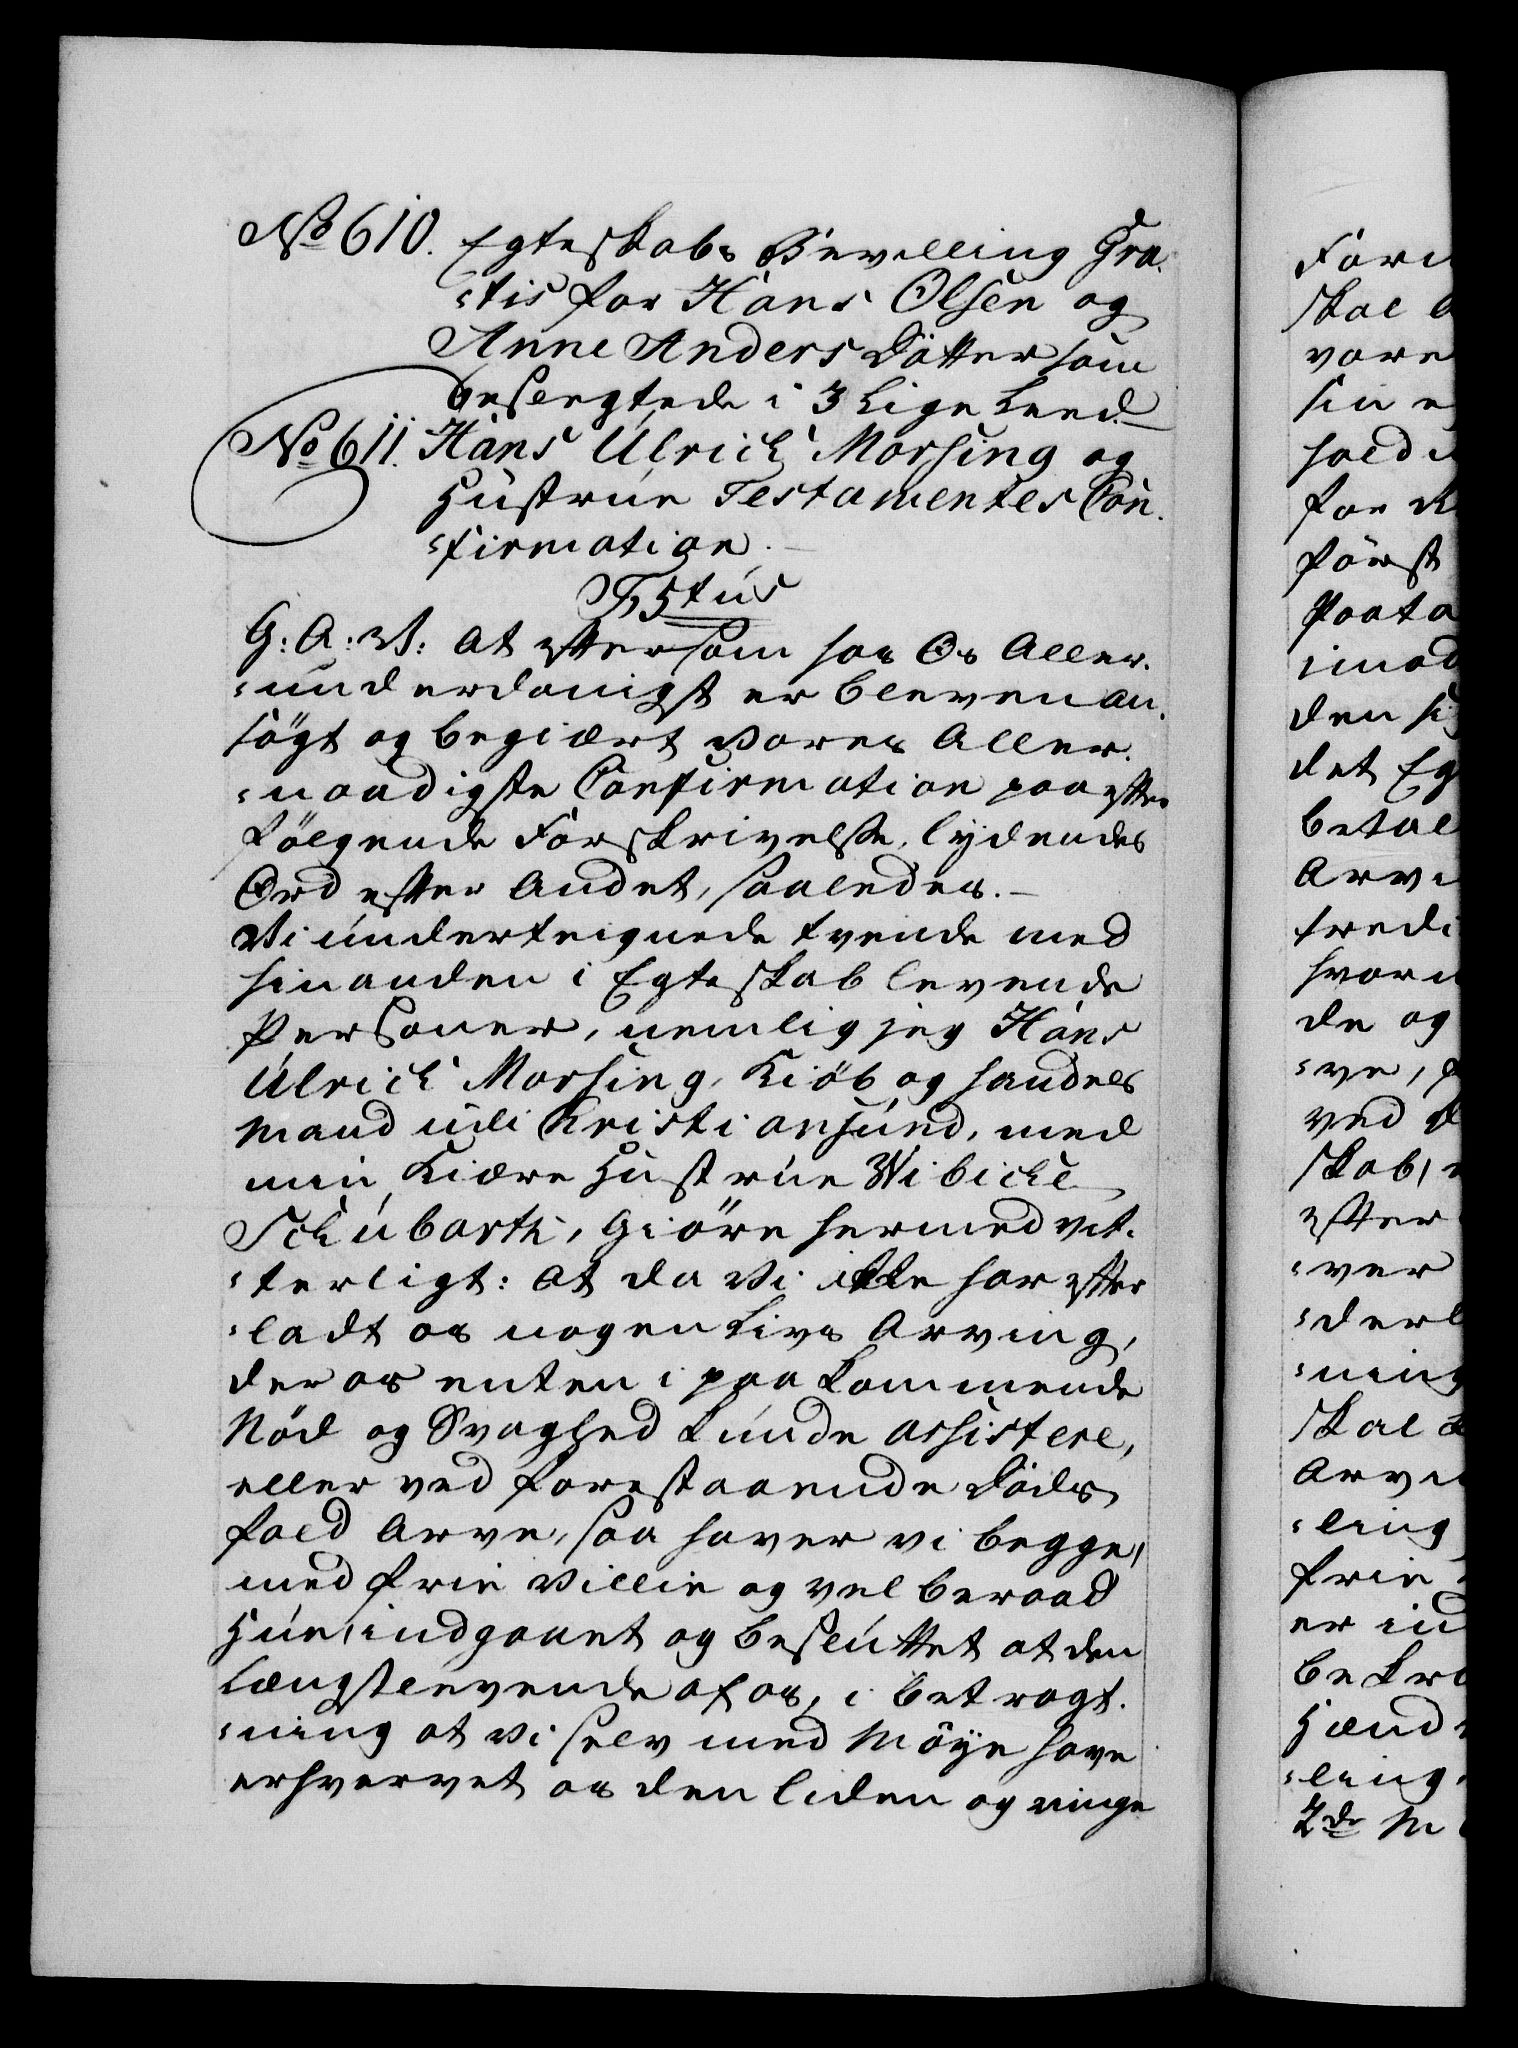 No 610. Egteskabs Bevilling Gra-
-tis for Hans Olsen og
Anne Anders Dötter som
beslegtede i 3 Lige Leed.
No 611. Hans Ulrich Morsing og
Hustrue Testamentes Con-
-firmation.
G: A: V: At eftersom hos Os Aller-
-underdanigst er bleven an-
søgt og begiært Vores Aller-
-naadigste Confirmation paa efter
følgende Forskrivelse, lydendes
Ord efter Andet, saaledes.
Vi underteignede tvende med
hinanden i Egteskab levende
Personer, nemlig jeg Hans
Ulrich Morsing, Kiøb og handels
Mand udi Christiansund, med
min Kiære Hustrue Wibiche
Schubarth, Giöre hermed vit-
-terligt: At da Vi ikke har efter
-ladt os nogen Livs Arving,
der os enten i paakommende
Nöd og Svaghed kunde assistere,
eller ved forestaaende Döds
fald Arve, saa haver vi begge,
med frie Villie og vel beraad
Hue, indgaaet og besluttet at den
Længstlevende af os, i betragt-
-ning at Vi selv med Möye have
erhvervet os den liden og ringe
Fore
skal
vore
sin
hold
for
først
Paata
imod
den
det Eg
betal
Arvi
fredi
hvor
de og
-ve,
ved
skab,
efter
-ver
-derl
-ning
skal
Arvi
-ling
frie
er ind
bekra
Hænd
-ling.
2de M